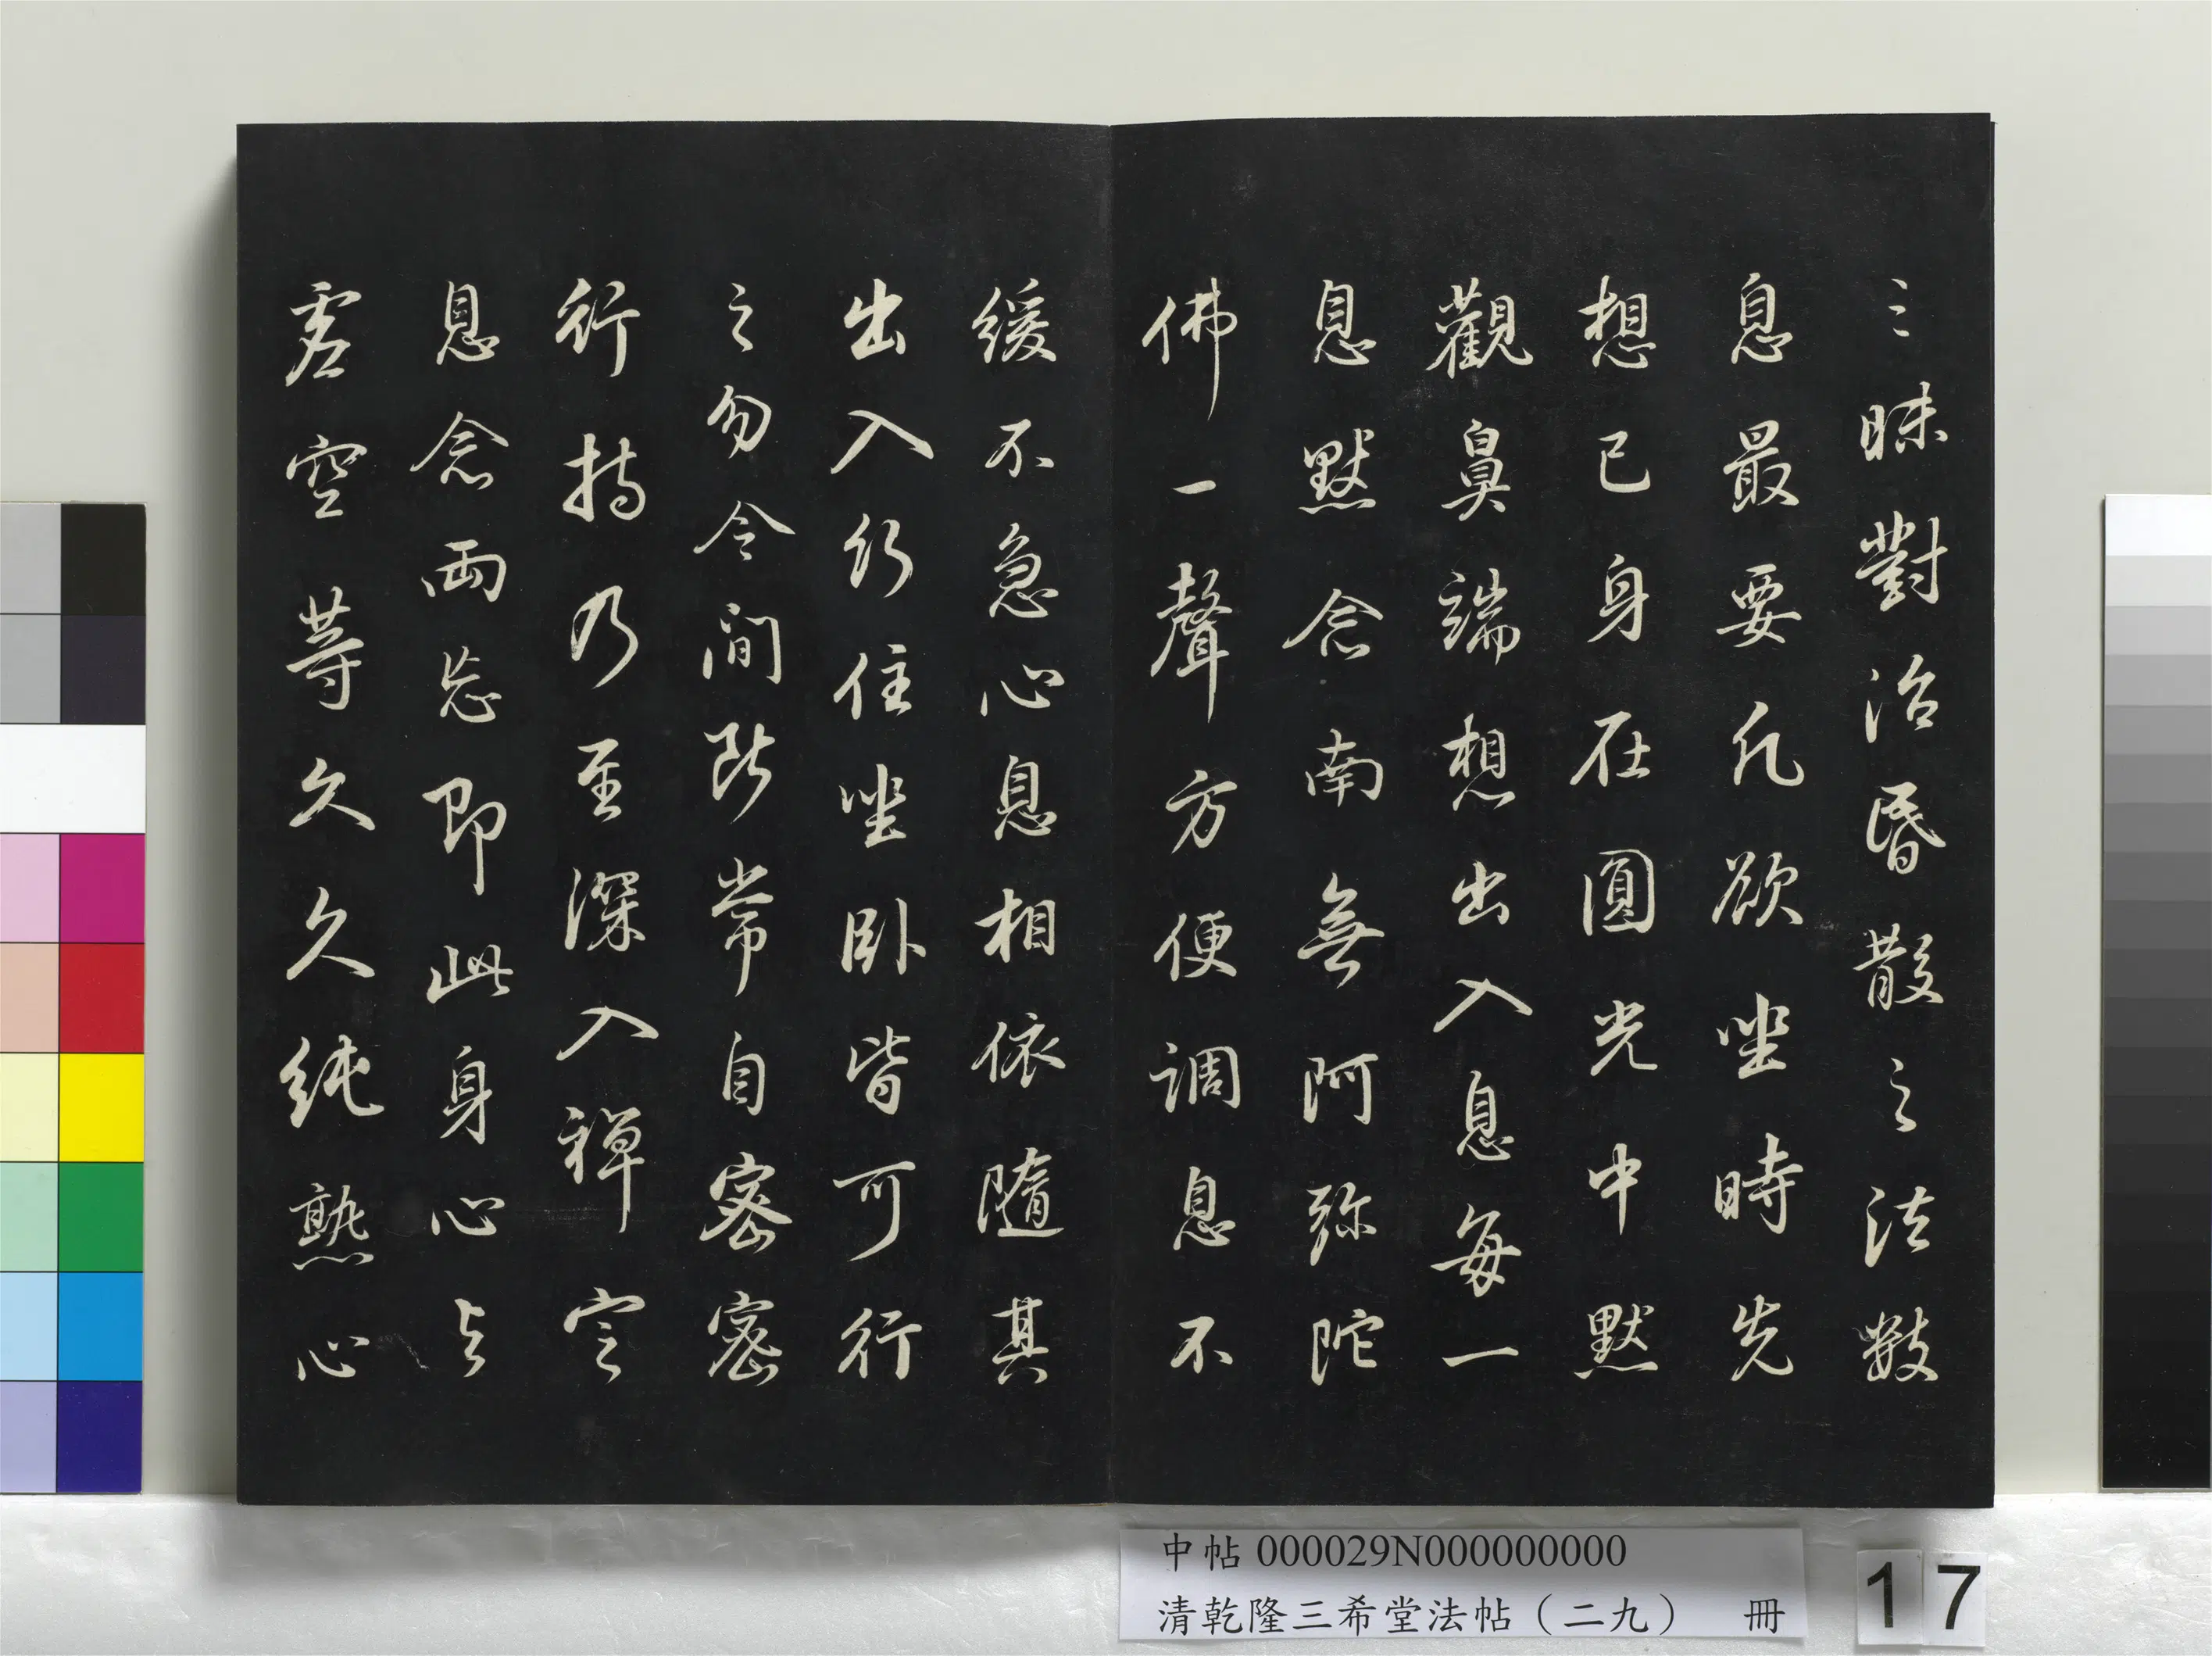 三昧對治昏散之法數
息最要凡欲坐時先
想已身在圓光中默
觀鼻端想出入息每一
息默念南無阿彌陀
佛一聲方便調息不
緩不急心息相依隨其
出入行住坐臥皆可行
之勿令間斷常自密密
行持乃至深入禪定
息念兩忘即此身心與
虛空等久久純熟心
中帖 000029N000000000
清乾隆三希堂法帖（二九） 冊
17